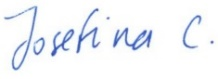 Josefina C.